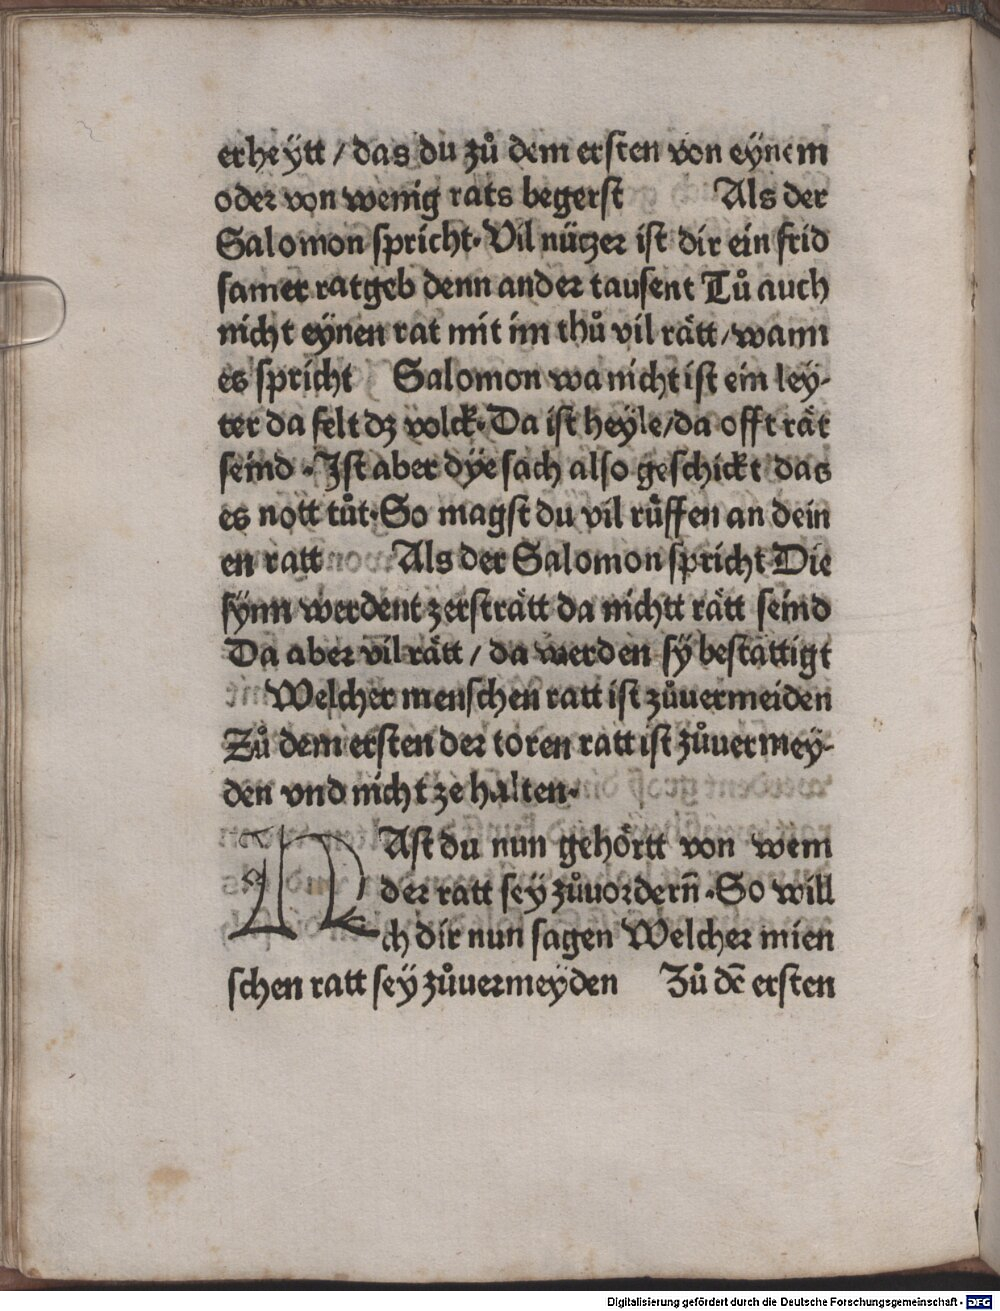 erheÿtt / das du zů dem ersten von eÿnem
oder von wenig rats begerst Als der
Salomon spricht· Vil nützer ist dir ein frid
samer ratgeb denn ander tausent Tů auch
nicht eÿnen rat mit im thů vil rått / wann
es spricht Salomon wa nicht ist ein leÿ-
ter da felt dz volck· Da ist heÿle / da offt råt
seind · Ist aber dÿe sach also geschickt das
es nott tůt· So magst du vil rüffen an dein
en ratt Als der Salomon spricht Die
sÿnn werdent zerstrått da nichtt rått seind
Da aber vil rått / da werden sÿ beståttigt
Welcher menschen ratt ist zůuermeiden
Zů dem ersten der toren ratt ist zůuermeÿ-
den vnd nicht ze halten·
N Ast du nun gehörtt von wem
der ratt seÿ zůuordern̄ · So will
ch dir nun sagen Welcher mien
schen ratt seÿ zůuermeÿden Zů dē ersten
Digitalisierung gefördert durch die Deutsche Forschungsgemeinschaft - DFG